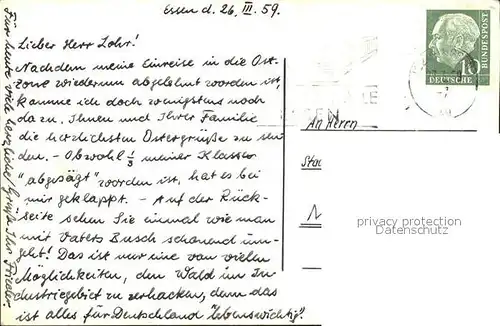 Essen d. 26. III. 59.
Lieber Herr Lohr!
Nachdem meine Einreise in die Ost-
zone wiederum abgelehnt worden ist,
komme ich doch wenigstens noch
dazu, Ihnen und Ihrer Familie
die herzlichsten Ostergrüße zu sen-
den. - Obwohl 1/3 meiner Klasse
"abgesägt" worden ist, hat es bei
mir geklappt. - Auf der Rück-
seite sehen Sie einmal wie man
mit Vaters Busch schonend um-
geht! Das ist nur eine von vielen
Möglichkeiten, den Wald im In-
dustriegebiet zu zerhacken, denn das
ist alles für Deutschland lebenswichtig!
Für heute viele herzliche Grüße Ihr
10
DEUTSCHE
BUNDESPOST
An Herrn
privacy protection
Datenschutz